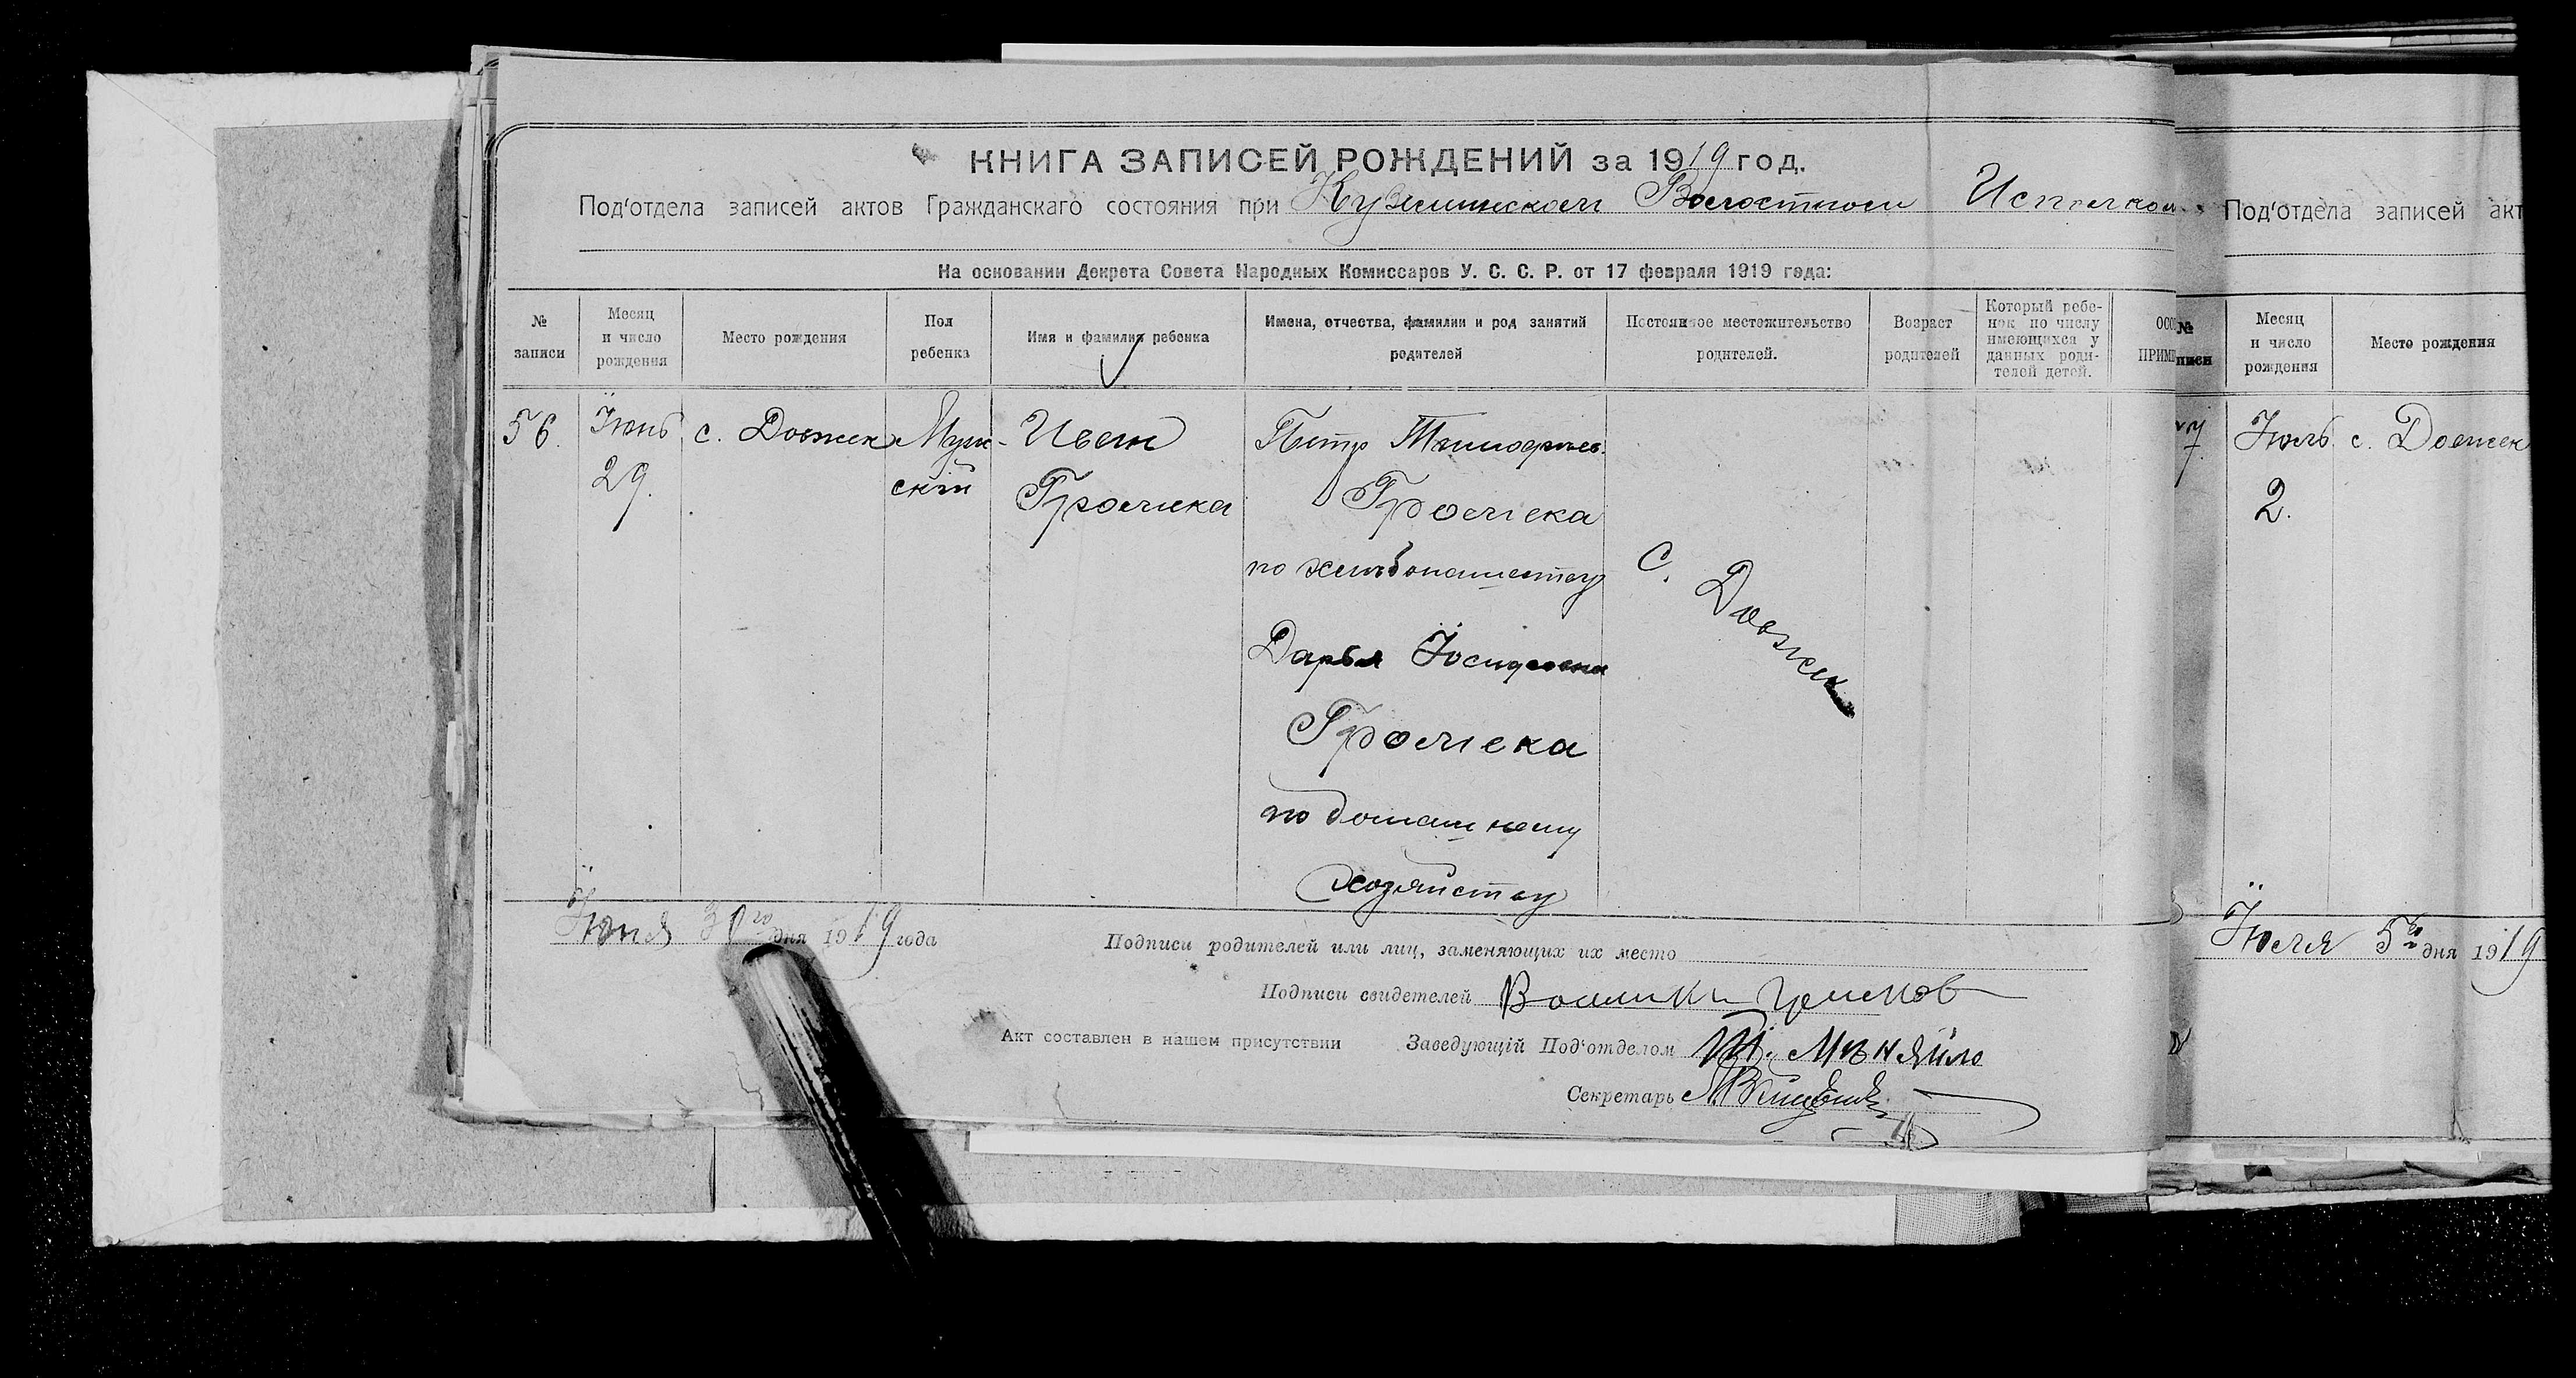 КНИГА ЗАПИСЕЙ РОЖДЕНИЙ за 1919 год.
Под'отдела записей актов Гражданскаго состояния при Кузминском Волостном Исполком
На основании Декрета Совета Народных Комиссаров У. С. С. Р. от 17 февраля 1919 года:
№ записи
Месяц и число рождения
Место рождения
Пол ребенка
Имя и фамилия ребенка
Имена, отчества, фамилии и род занятий родителей
Постоянное местожительство родителей.
Возраст родителей
Который ребе-
нок по числу
имеющихся у
данных роди-
телей детей.
ОСО
ПРИМ
56.
Июнь
29.
с. Довжек
Муж-
скій
Иван
Громека
Петр
Громека
по хлѣбопашеству
Дарья Іосифовна
Громека
по домашнему
хозяйству
С. Довжик
Июня 30го дня 1919 года
Подписи родителей или лиц, заменяющих их место
Подписи свидетелей
Акт составлен в нашем присутствии
Заведующій Под'отделом
Мѣняйло
Секретарь
Под'отдела записей акт
№ писи
Месяц и число рождения
Место рождения
7
Июль
2.
с. Довжек
Июля 5го дня 1919